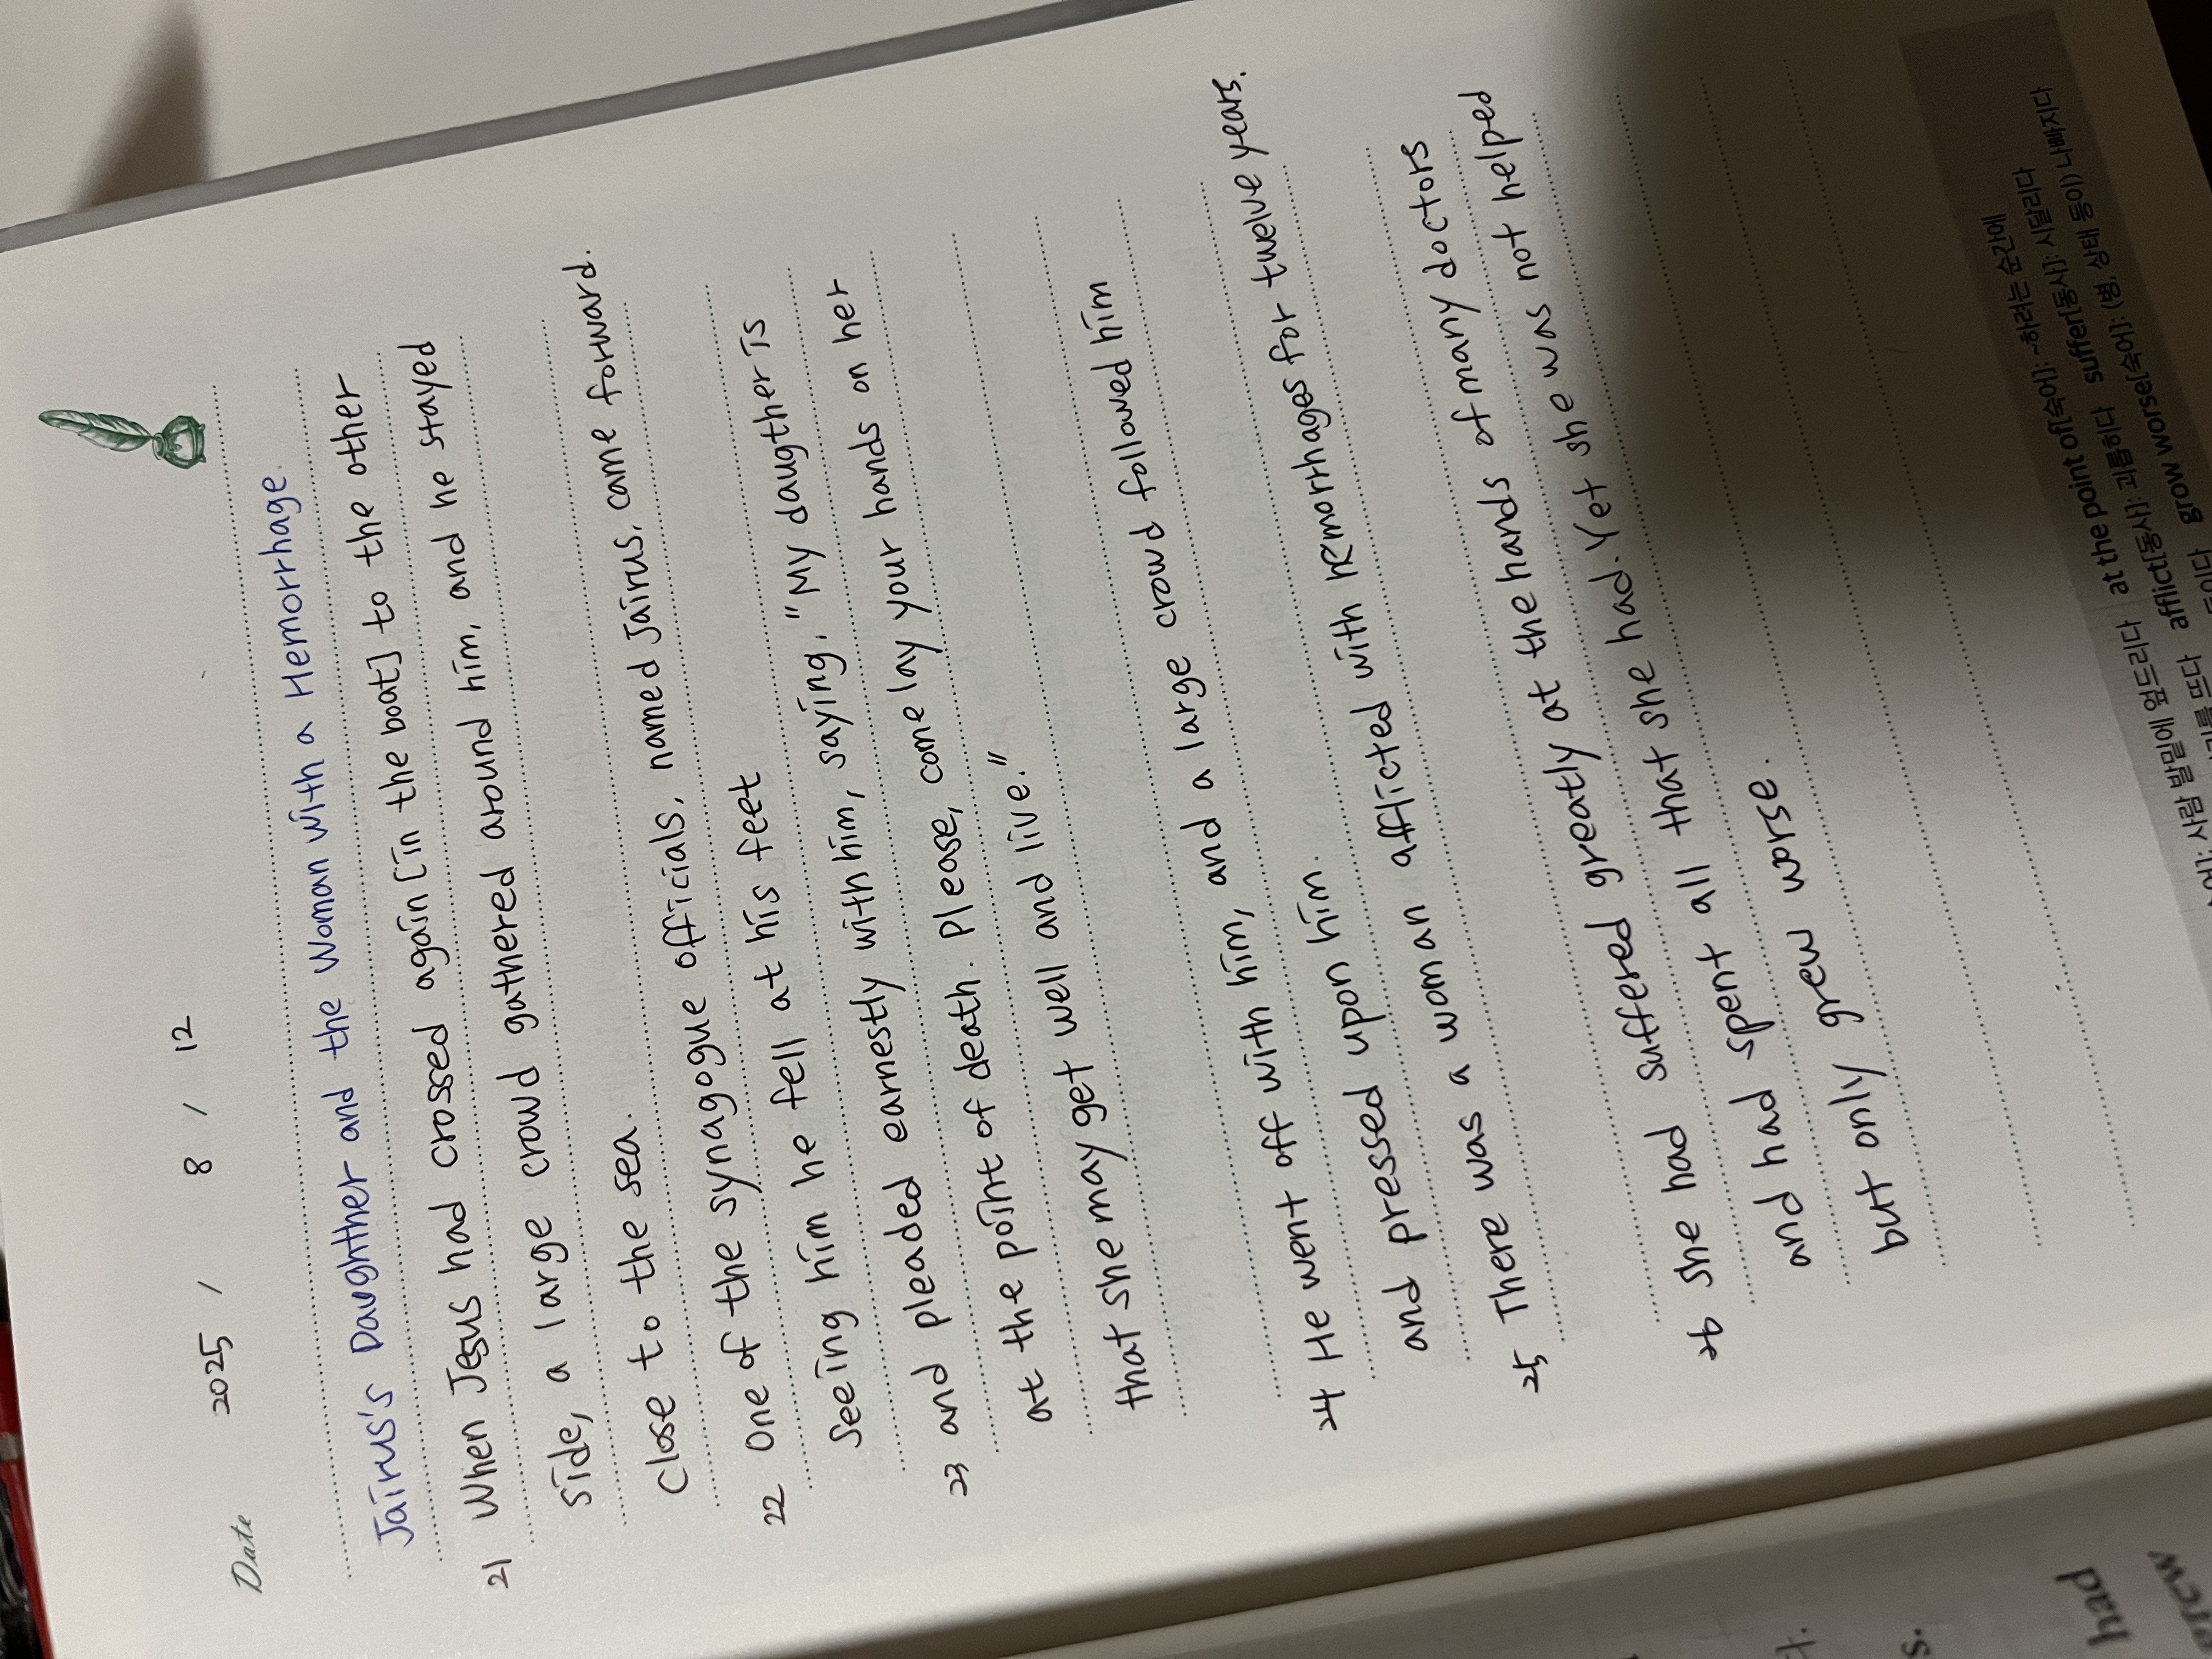 Date 2025 / 8 / 12
Jairus's Daughther and the Woman with a Hemorrhage.
21 When Jesus had crossed again [in the boat] to the other
side, a large crowd gathered around him, and he stayed
close to the sea.
22 One of the synagogue officials, named Jairus, came forward.
Seeing him he fell at his feet
23 and pleaded earnestly with him, saying, "My daugther is
at the point of death. Please, come lay your hands on her
that she may get well and live."
24 He went off with him, and a large crowd followed him
and pressed upon him.
25 There was a woman afflicted with hemorrhages for twelve years.
26 she had suffered greatly at the hands of many doctors
and had spent all that she had. Yet she was not helped
but only grew worse.
사람 발밑에 엎드리다 at the point of[숙어]: ~하려는 순간에
뜨다 afflict[동사]: 괴롭히다 suffer[동사]: 시달리다
grow worse[숙어]: (병, 상태 등이) 나빠지다
s.
had
grew